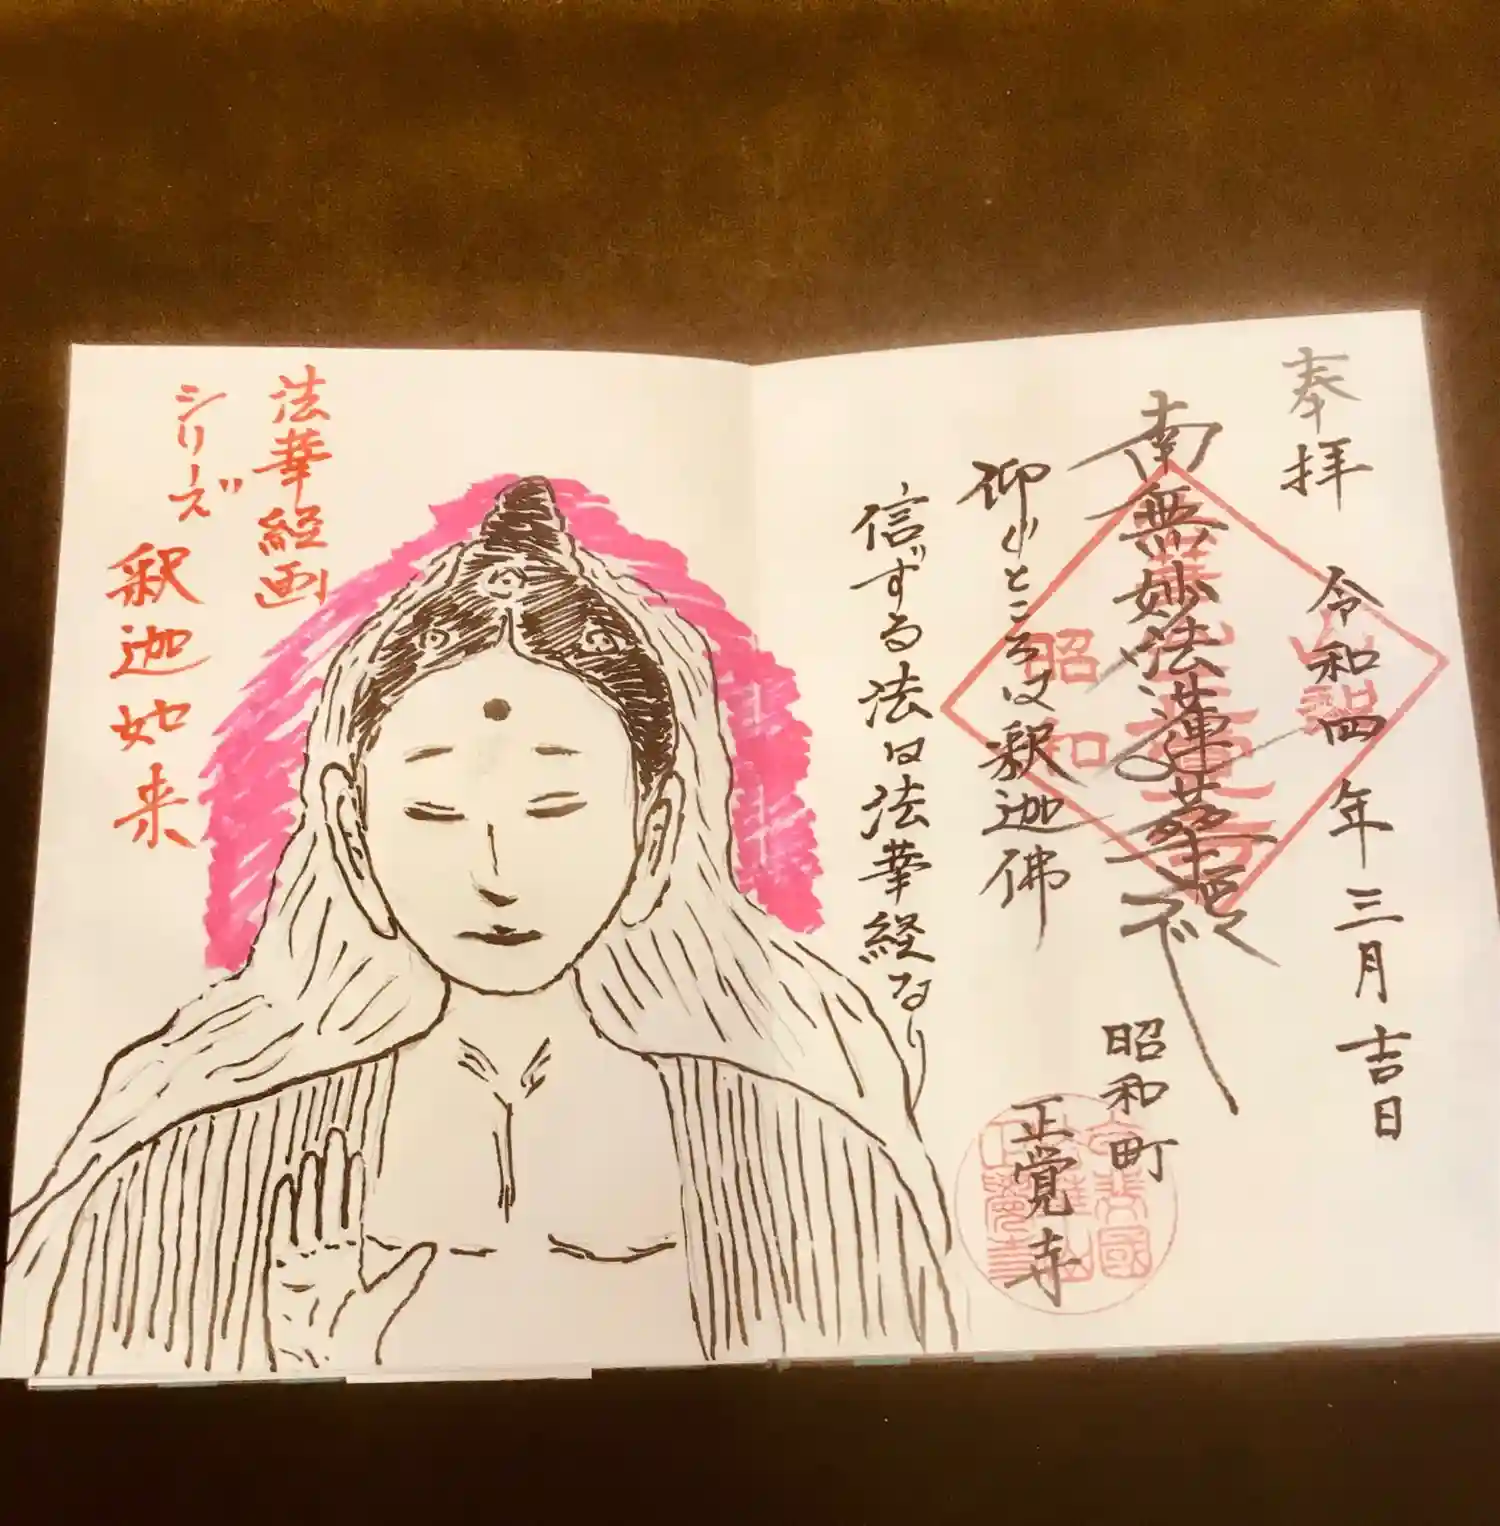 奉拝 令和四年三月吉日
南無妙法蓮華経
仰ぐところは釈迦佛
信ずる法は法華経なり
昭和町
正覚寺
昭和
法華経画
シリーズ
釈迦如来